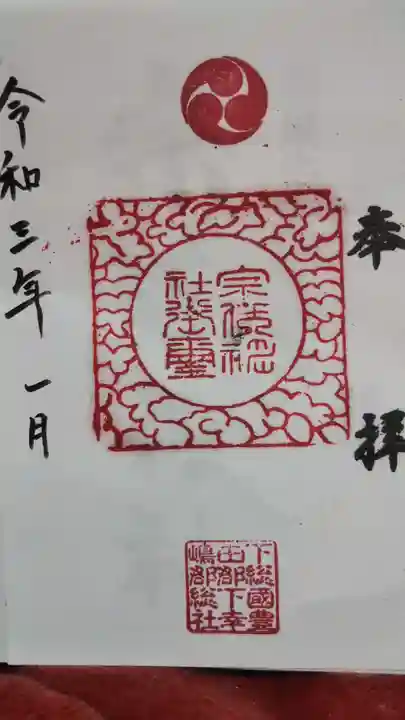 奉拝
宗像神
社御璽
下總國豊
田郡下幸
嶋郡総社
令和三年一月